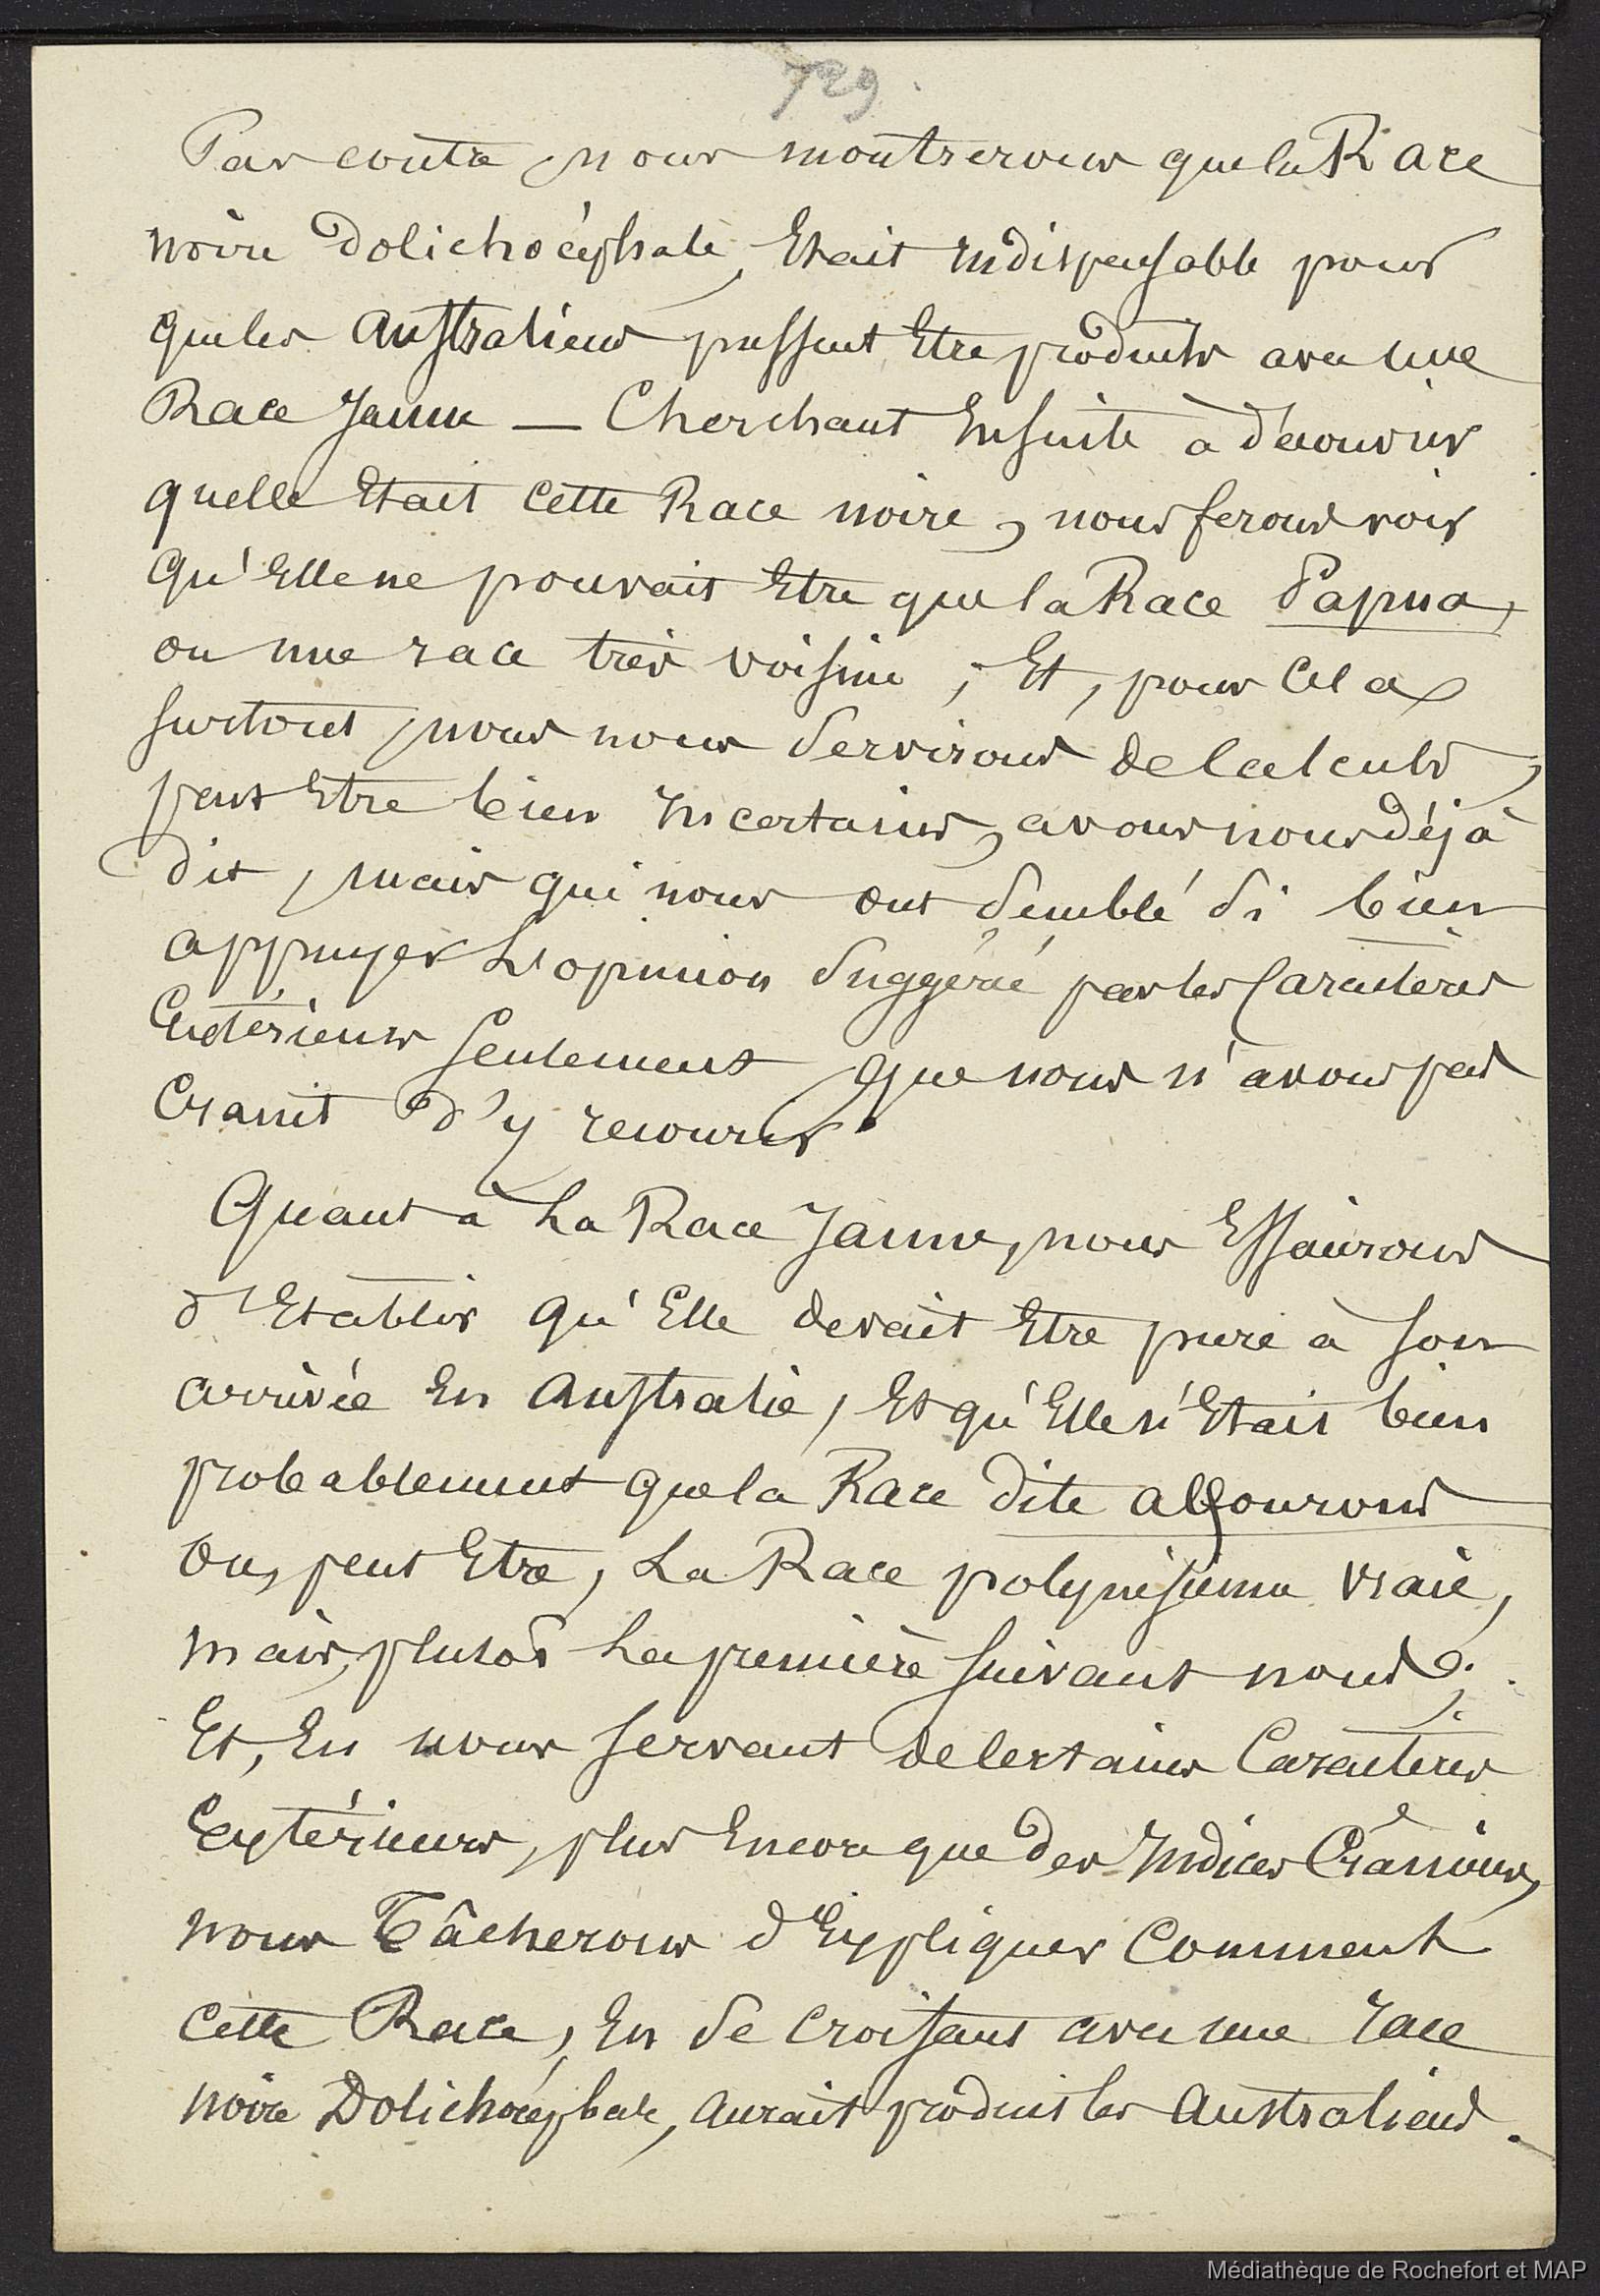 729.
Par contre, nous montrerons que la Race
noire Dolichocéphale, Etait indispensable pour
que les Australiens pussent Etre produits avec une
Race Jaune — Cherchant Ensuite à découvrir
quelle Etait Cette Race noire, nous ferons voir
qu'Elle ne pouvait Etre que la Race Papua,
ou une race très voisine ; Et, pour Cela
surtout, nous nous servirons de Calculs,
peut Etre bien Incertains, avons nous déjà
dit, mais qui nous ont semblé si bien
appuyer L'opinion suggérée par les Caractères
Extérieurs seulement, que nous n'avons pas
Craint d'y recourir.
Quant à La Race Jaune, nous Essaierons
d'Etablir qu'Elle devait Etre pure à son
arrivée En Australie, Et qu'Elle n'Etait bien
probablement que la Race dite alfourous
ou, peut Etre, La Race polynésienne vraie,
mais, plutôt La première suivant nous ;
Et, En nous servant de Certains Caractères
Extérieurs, plus Encore que des Indices Crâniens,
nous Tâcherons d'Expliquer Comment
Cette Race, En se Croisant avec une race
noire Dolichocéphale, aurait produit les Australiens.
Médiathèque de Rochefort et MAP